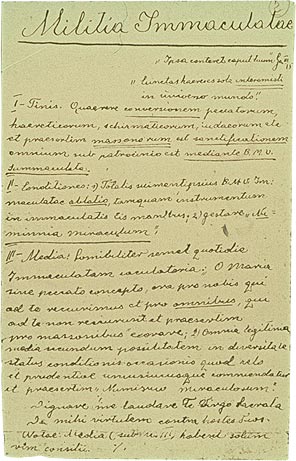 Militia Immaculatae
"Ipsa conteret caput tuum" Gn III 15
"Cunctas haereses sola interemisti
in universo mundo."
I – Finis. Quaerere conversionem peccatorum,
haereticorum, schismaticorum, iudaeorum etc
et praesertim massonorum est sanctificationem
omnium sub patrocinio est mediante B.M.V.
Immaculata.
II – Conditiones: 1) Totalis suimetipsius B.M.V. Im-
maculatae oblatio, tamquam instrumentum
in immaculatis eis manibus; 2) gestare "Nu-
misma miraculosum".
III – Media: Simibiliter semel quotidie
Immaculatam iaculatoria: O Maria
sine peccato concepta, ora pro nobis qui
ad te recurrimus et pro omnibus, qui
ad te non recurrunt et praesertim
pro massonibus exorare; 2) Omnia legitima
media secundum possibilitatem in diversitate
status conditionis occasionis quod zelo
et prudentiae uniuscuiusque commendatur
et praesertim "Numisma miraculosum".
Dignare me laudare Te Virgo sacrata
Da mihi virtutem contra hostes tuos.
Notae: Media (sub nr III) habent solum
vim consilii